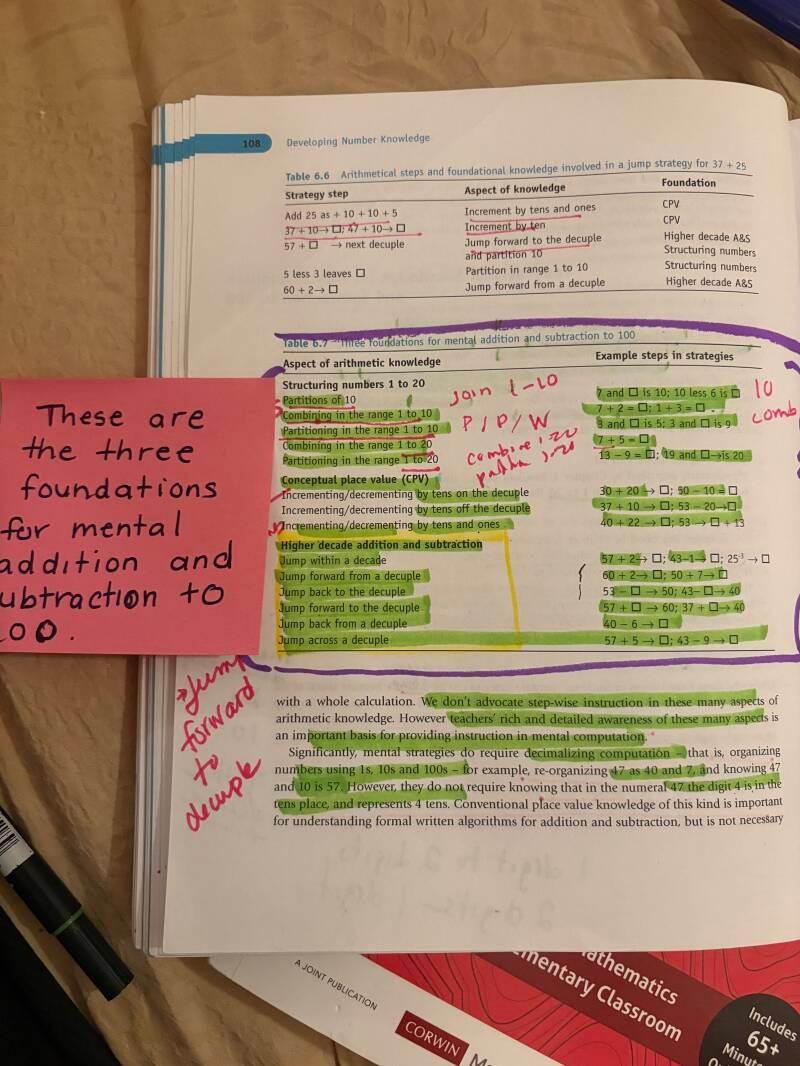 108
Developing Number Knowledge
Table 6.6 Arithmetical steps and foundational knowledge involved in a jump strategy for 37 + 25
Strategy step Aspect of knowledge Foundation
Add 25 as + 10 + 10 + 5 Increment by tens and ones CPV
37 + 10→ □; 47 + 10→ □ Increment by ten CPV
57 + □ → next decuple Jump forward to the decuple Higher decade A&S
and partition 10 Structuring numbers
5 less 3 leaves □ Partition in range 1 to 10 Structuring numbers
60 + 2→ □ Jump forward from a decuple Higher decade A&S
Table 6.7 Three foundations for mental addition and subtraction to 100
Aspect of arithmetic knowledge Example steps in strategies
Structuring numbers 1 to 20
Partitions of 10 7 and □ is 10; 10 less 6 is □
Combining in the range 1 to 10 7 + 2 = □; 1 + 3 = □
Partitioning in the range 1 to 10 3 and □ is 5; 3 and □ is 9
Combining in the range 1 to 20 7 + 5 = □
Partitioning in the range 1 to 20 13 − 9 = □; 19 and □→is 20
join 1-10
P/P/W
combine 1-20
10
comb
Conceptual place value (CPV)
Incrementing/decrementing by tens on the decuple 30 + 20 → □; 50 − 10 = □
Incrementing/decrementing by tens off the decuple 37 + 10 → □; 53 − 20→ □
Incrementing/decrementing by tens and ones 40 + 22 → □; 53 → □ + 13
Higher decade addition and subtraction
Jump within a decade 57 + 2→ □; 43−1→ □; 25⁻³ → □
Jump forward from a decuple 60 + 2→ □; 50 + 7→ □
Jump back to the decuple 53 − □ → 50; 43− □→ 40
Jump forward to the decuple 57 + □ → 60; 37 + □→ 40
Jump back from a decuple 40 − 6 → □
Jump across a decuple 57 + 5 → □; 43 − 9 → □
These are
the three
foundations
for mental
addition and
ubtraction to
00.
→Jump
forward
to
decuple
with a whole calculation. We don't advocate step-wise instruction in these many aspects of
arithmetic knowledge. However teachers' rich and detailed awareness of these many aspects is
an important basis for providing instruction in mental computation.
Significantly, mental strategies do require decimalizing computation – that is, organizing
numbers using 1s, 10s and 100s – for example, re-organizing 47 as 40 and 7, and knowing 47
and 10 is 57. However, they do not require knowing that in the numeral 47 the digit 4 is in the
tens place, and represents 4 tens. Conventional place value knowledge of this kind is important
for understanding formal written algorithms for addition and subtraction, but is not necessary
A JOINT PUBLICATION
CORWIN
athematics
mentary Classroom
Includes
65+
Minut